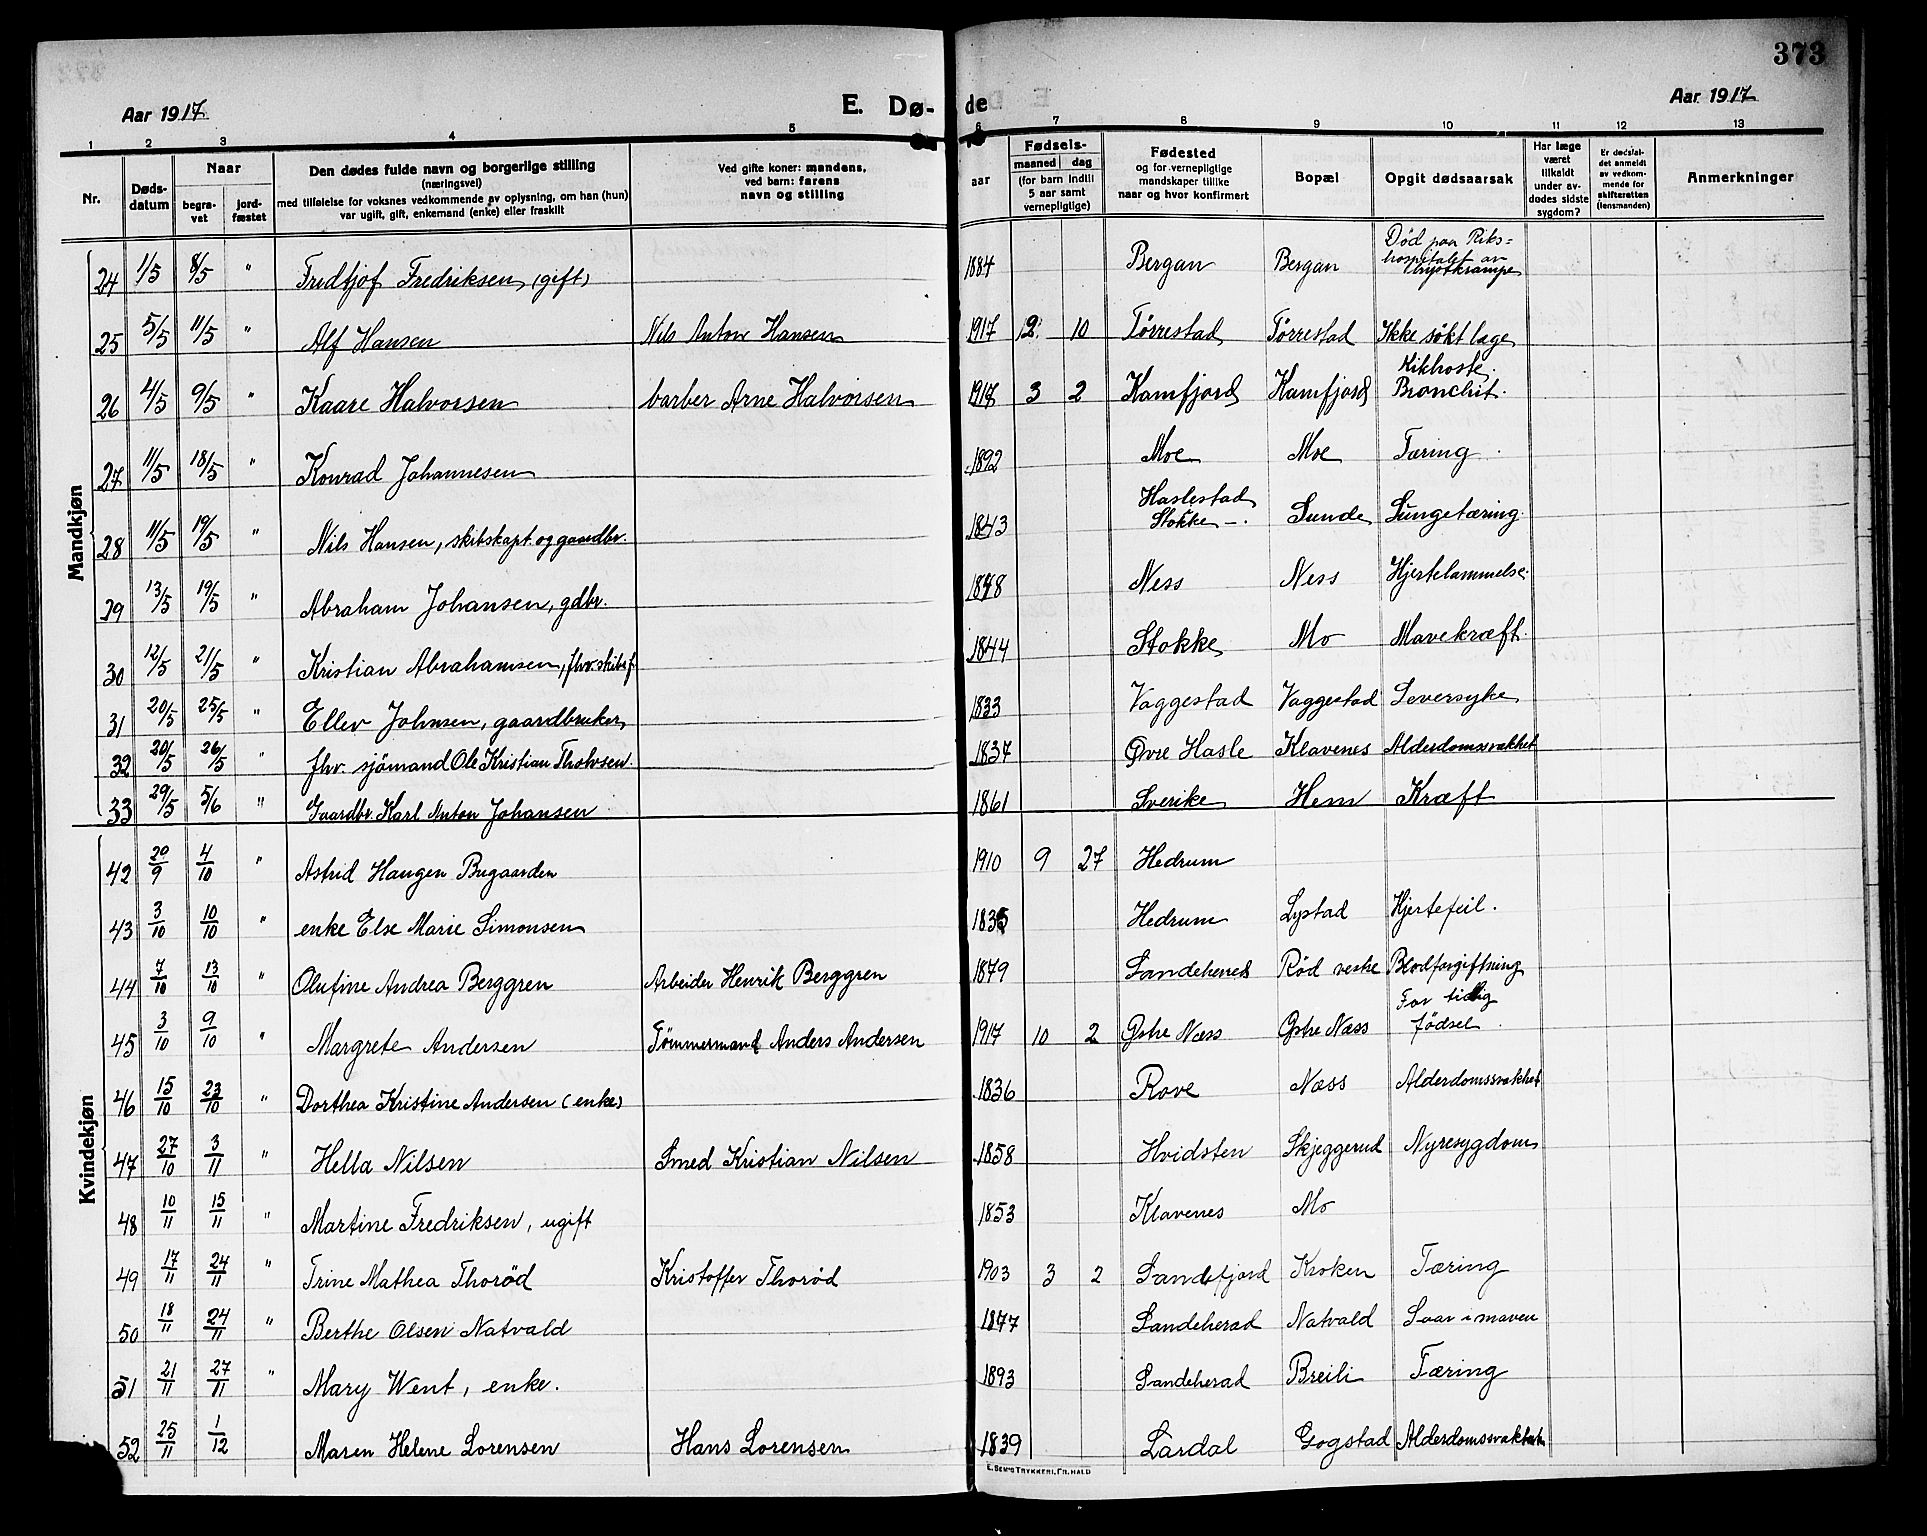 373
Aar 1917
E. Dø-
de
Aar 1917
1 2 3 4 5 6 7 8 9 10 11 12 13
Nr.
Døds-
datum
Naar
begra-
vet
jord-
fæstet
Den dødes fulde navn og borgerlige stilling
(næringsvei)
med tilføielse for voksnes vedkommende av oplysning, om han (hun)
var ugift, gift, enkemand (enke) eller fraskilt
Ved gifte koner: mandens,
ved barn: farens
navn og stilling
aar
Fødsels-
maaned dag
(for barn indtil
5 aar samt
vernepligtige)
Fødested
og for vernepligtige
mandskaper tillike
naar og hvor konfirmert
Bopæl
Opgit dødsaarsak
Har læge
været
tilkaldt
under av-
dødes sidste
sygdom?
Er dødsfal-
det anmeldt
av vedkom-
mende for
skifteretten
(lensmanden)
Anmerkninger
Mandkjøn
24 1/5 8/5 " Fredtjof Fredriksen (gift) 1884 Bergan Bergan Død paa Riks=
hospitalet av
25 5/5 11/5 " Alf Hansen Nils Anton Hansen 1917 2 10 Tørrestad Tørrestad Ikke søkt læge
26 4/5 9/5 " Kaare Halvorsen barber Arne Halvorsen 1917 3 2 Kamfjord Kamfjord Kikhoste.
Bronchit.
27 11/5 18/5 " Konrad Johannesen 1892 Moe Moe Tæring
28 11/5 19/5 " Nils Hansen, skibskapt. og gaardbr. 1843 Haslestad
Stokke Sunde Lungetæring
29 13/5 19/5 " Abraham Johansen, gdbr. 1848 Ness Ness Hjertelammelse.
30 12/5 21/5 " Kristian Abrahamsen, fhv. skibsf. 1844 Stokke Mo Mavekræft.
31 20/5 25/5 " Ellev Johnsen, gaardbruker 1833 Vaggestad Vaggestad Leversyke
32 20/5 26/5 " fhv. sjömand Ole Kristian Tholvsen. 1837 Øvre Hasle Klavenes Alderdomssvakhet
33 29/5 5/6 " Gaardbr. Karl Anton Johansen 1861 Sverike Hem Kræft
Kvindekjøn
42 29/9 4/10 " Astrid Haugen Bugaarden 1910 9 27 Hedrum
43 3/10 10/10 " enke Else Marie Simonsen 1835 Hedrum Lystad Hjertefeil.
44 7/10 13/10 " Olufine Andrea Berggren Arbeider Henrik Berggren 1879 Sandeherred Rød vestre Blodforgiftning
45 3/10 9/10 " Margrete Andersen Tømmermand Anders Andersen 1917 10 2 Østre Næss Østre Næss For tidlig
fødsel.
46 15/10 23/10 " Dorthea Kristine Andersen (enke) 1836 Rove Næss Alderdomssvakhet
47 27/10 3/11 " Hella Nilsen Smed Kristian Nilsen 1858 Hvidsten Skjeggerud Nyresygdom
48 10/11 15/11 " Martine Fredriksen, ugift 1853 Klavenes Mo
49 17/11 24/11 " Trine Mathea Thorød Kristoffer Thorød 1903 3 2 Sandefjord Kroken Tæring
50 18/11 24/11 " Berthe Olsen Natvald 1877 Sandeherad Natvald Saar i maven
51 21/11 27/11 " Mary Went, enke. 1893 Sandeherad Breili Tæring
52 25/11 1/12 Maren Helene Lorensen Hans Lorensen 1839 Lardal Gogstad Alderdomssvakhet
E. SEM'S TRYKKERI, FR.HALD